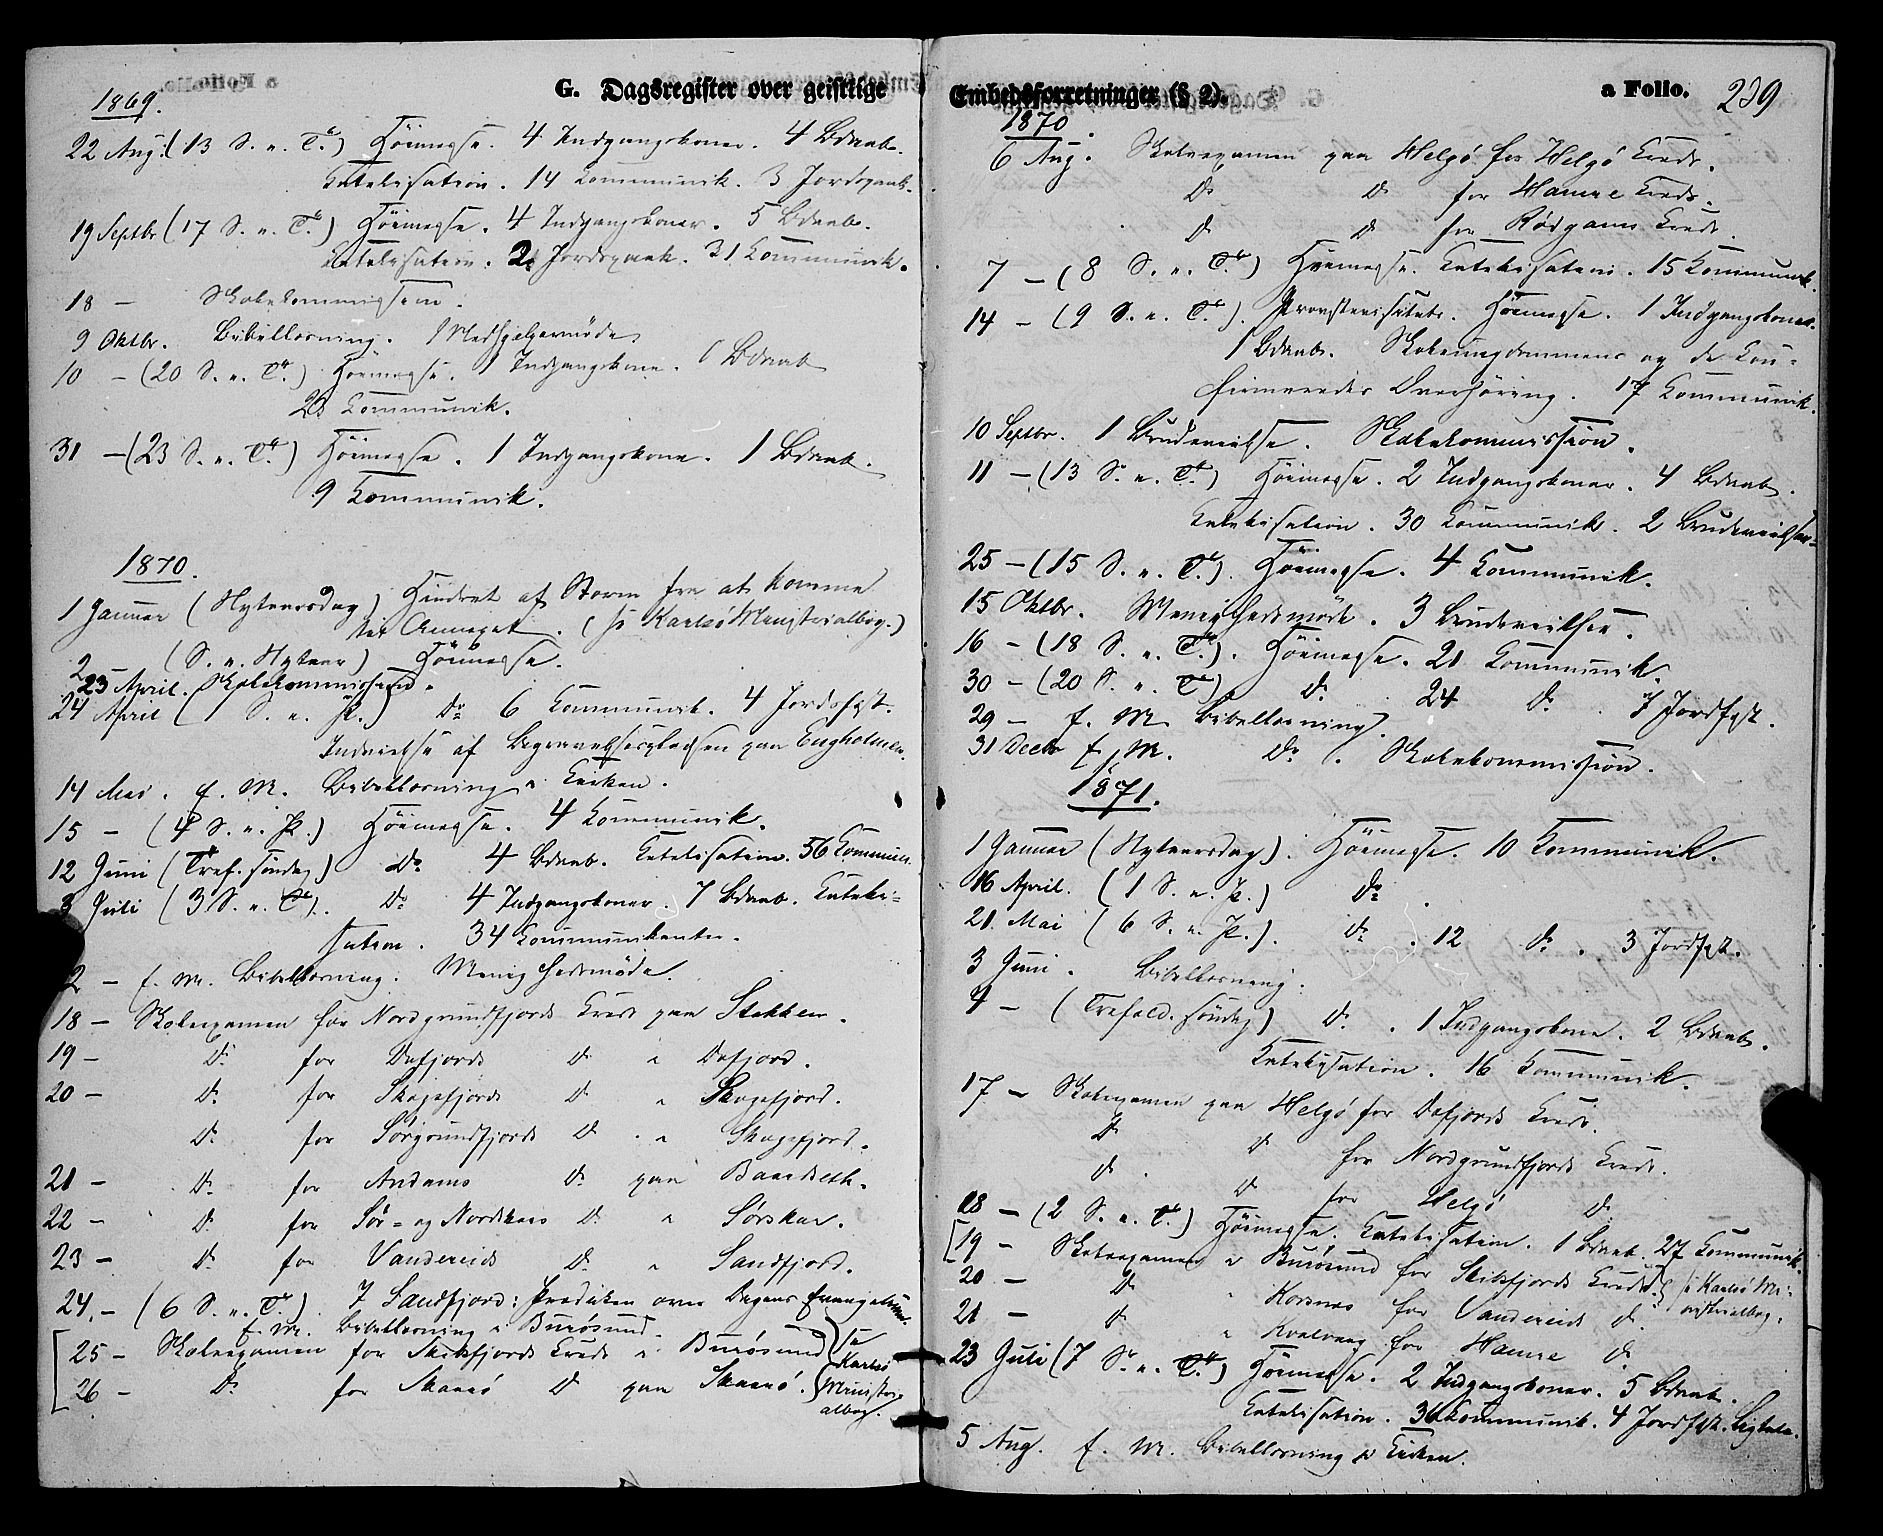 G. Dagsregister over geistlige
1869.
22 Aug. (13 S. e. Tr.) Höimesse. 4 Indgangskoner. 4 Bdaab.
Katekisation. 14 Kommunik. 3 Jordspaak.
19 Septbr (17 S. e. Tr.) Höimesse. 4 Indgangskoner. 5 Bdaab.
Katekisation. 2 Jordspaak. 31 Kommunik.
18 – Skolekommission.
9 Oktbr. Bibellæsning. 1 Medhjelpermöde
10 – (20 S. e. Tr.) Höimesse. 1 Indgangskone. 1 Bdaab
Kommunik.
31 – (23 S. e. Tr.) Höimesse. 1 Indgangskone. 1 Bdaab.
9 Kommunik.
1870.
1 Januar (Nytaarsdag) Hindret af Storm fra at komme
til Annexet. (se Karlsö Ministerialbog.)
2 (S. e. Nytaar) Höimesse.
23 April. Skolekommission.
24 April (1 S. e. P.) Do 6 Kommunik. 4 Jordfæst.
Indvielse af Begravelsespladsen paa Engholmen.
14 Mai. f. M. Bibellæsning i Kirken.
15 – (4 S. e. P.) Höimesse. 4 Kommunik.
12 Juni (Tref. söndag) Do 4 Bdaab. Katekisation. 56 Kommun.
3 Juli (3 S. e. Tr). Do 4 Indgangskoner. 7 Bdaab. Kateki-
sation. 34 Kommunikanter.
2 – f. M. Bibellæsning. Menighedsmöde.
18 – Skoleexamen for Nordgrundfjords Kreds paa Stakken.
19 – Do for Dafjords Do i Dafjord.
20 – Do for Skogsfjords Do i Skogsfjord.
Do for Sörgrundfjords Do i Skogsfjord.
21 – Do for Andams Do paa Baardseth.
22 – Do for Sör- og Nordskars Do i Sörskar.
23 – Do for Vandereids Do i Sandfjord.
24. – (6 S. e. Tr.) I Sandfjord: Prædiken over Dagens Evangelium.
f. M. Bibellæsning i Burösund.
25 – Skoleexamen for Skibsfjords Kreds i Burösund (se
26 – Do for Skaarö Do paa Skaarö. Karlsö
Ministeri-
albog.
Embedsforretninger (§ 2). a Folio. 239
1870.
6 Aug. Skoleexamen paa Helgö for Helgö Kreds.
Do Do for Hamre Kreds.
Do Do for Rödgams Kreds.
7 – (8 S. e. Tr.) Höimesse. Katekisation. 15 Kommunik.
14 – (9 S. e. Tr.). Provstevisitats. Höimesse. 1 Indgangskone.
1 Bdaab. Skoleungdommens og de Kon-
firmeredes Overhöring. 17 Kommunik.
10 Septbr. 1 Brudevielse. Skolekommission.
11 – (13 S. e. Tr.) Höimesse. 2 Indgangskoner. 4 Bdaab.
Katekisation. 30 Kommunik. 2 Brudevielser.
25 – (15 S. e. Tr.). Höimesse. 4 Kommunik.
15 Oktbr. Menighedsmöde. 3 Brudevielser.
16 – (18 S. e. Tr.). Höimesse. 21 Kommunik.
30 – (20 S. e. Tr) Do 24 Do. 7 Jordfæst.
29 – f. M. Bibellæsning.
31 Decbr f. M. Do. Skolekommission.
1871.
1 Januar (Nytaarsdag). Höimesse. 10 Kommunik.
16 April. (1 S. e. P.) Do.
21. Mai (6 S. e. P.). Do. 12 Do. 3 Jordfæst.
3 Juni. Bibellæsning.
4 – (Trefold. söndag) Do. 1 Indgangskone. 2 Bdaab.
Katekisation. 16 Kommunik.
17 – Skoleexamen paa Helgö for Dafjords Kreds.
Do Do for Nordgrundfjords Kreds.
Do. Do for Helgö Do.
18 – (2 S. e. Tr.) Höimesse. Katekisation. 1 Bdaab. 27 Kommunik.
19 – Skoleexamen i Burösund for Skibsfjords Kreds. (se Karlsö Mi-
20 – Do i Korsnes for Vandereids Do. nisterialbog.
21 – Do i Kvalvaag for Hamre Do.
23 Juli (7 S. e. Tr.) Höimesse. 2 Indgangskoner. 5 Bdaab.
Katekisation. 36 Kommunik. 4 Jordfæst. Ligtale.
5 Aug. f. M. Bibellæsning i Kirken.